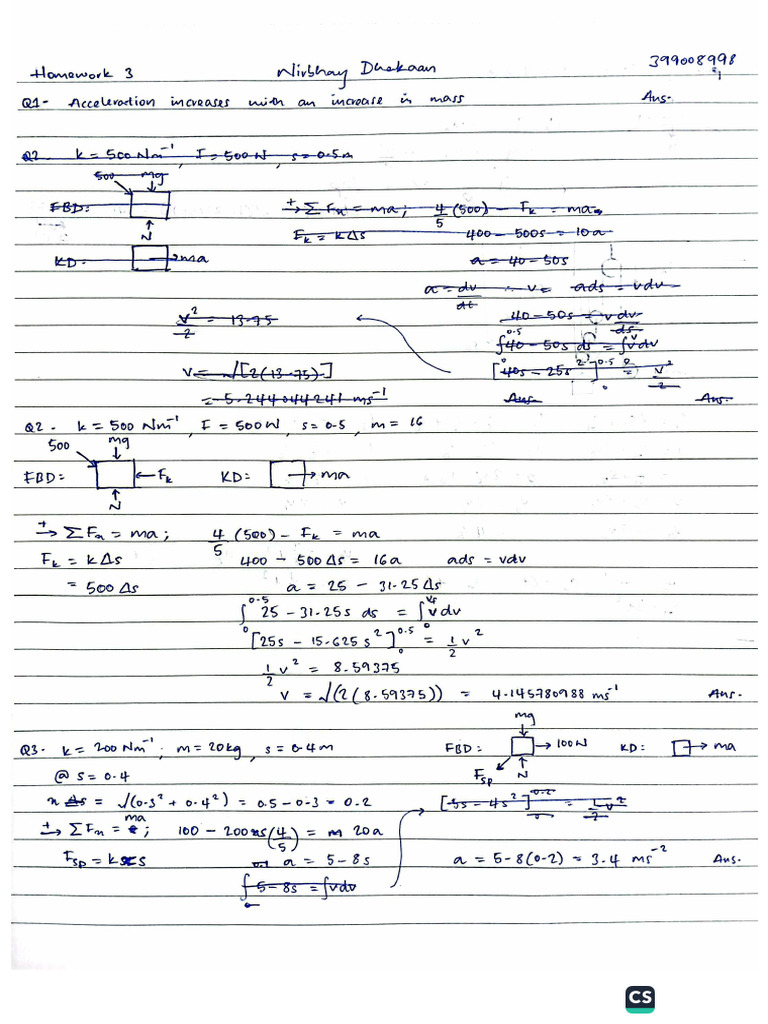 Homework 3 Nirbhay Dhakaan 399008998
Q1- Acceleration increases with an increase in mass Ans.
Q2. k = 500 Nm⁻¹, F = 500 N, s = 0.5 m
500 mg
FBD: →+ ΣFx = ma; 4/5 (500) - Fk = ma
N Fk = kΔs 400 - 500s = 10a
KD: → ma a = 40 - 50s
a = dv/dt v = ads = vdv
v²/2 = 13.75 40 - 50s = v dv/ds
∫₀^0.5 40 - 50s ds = ∫₀^v vdv
v = √[2(13.75)] [40s - 25s²]₀^0.5 = v²/2
= 5.244044241 ms⁻¹ Ans Ans.
Q2. k = 500 Nm⁻¹, F = 500 N, s = 0.5, m = 16
500 mg
FBD: ← Fk KD: → ma
N
→+ ΣFx = ma; 4/5 (500) - Fk = ma
Fk = kΔs 400 - 500Δs = 16a ads = vdv
= 500Δs a = 25 - 31.25Δs
∫₀^0.5 25 - 31.25s ds = ∫₀^vs vdv
[25s - 15.625s²]₀^0.5 = 1/2 v²
1/2 v² = 8.59375
v = √(2(8.59375)) = 4.145780988 ms⁻¹ Ans.
mg
Q3. k = 200 Nm⁻¹; m = 20kg, s = 0.4m FBD: → 100N KD: → ma
@ s = 0.4 Fsp N
x Δs = √(0.3² + 0.4²) = 0.5 - 0.3 = 0.2 [5s - 4s²]₀^0.2 = 1/2 v²
→+ ΣFx = ma; 100 - 200xs(4/5) = m 20a
Fsp = kxs a = 5 - 8s a = 5 - 8(0.2) = 3.4 ms⁻² Ans.
∫₀ 5 - 8s = ∫vdv
CS